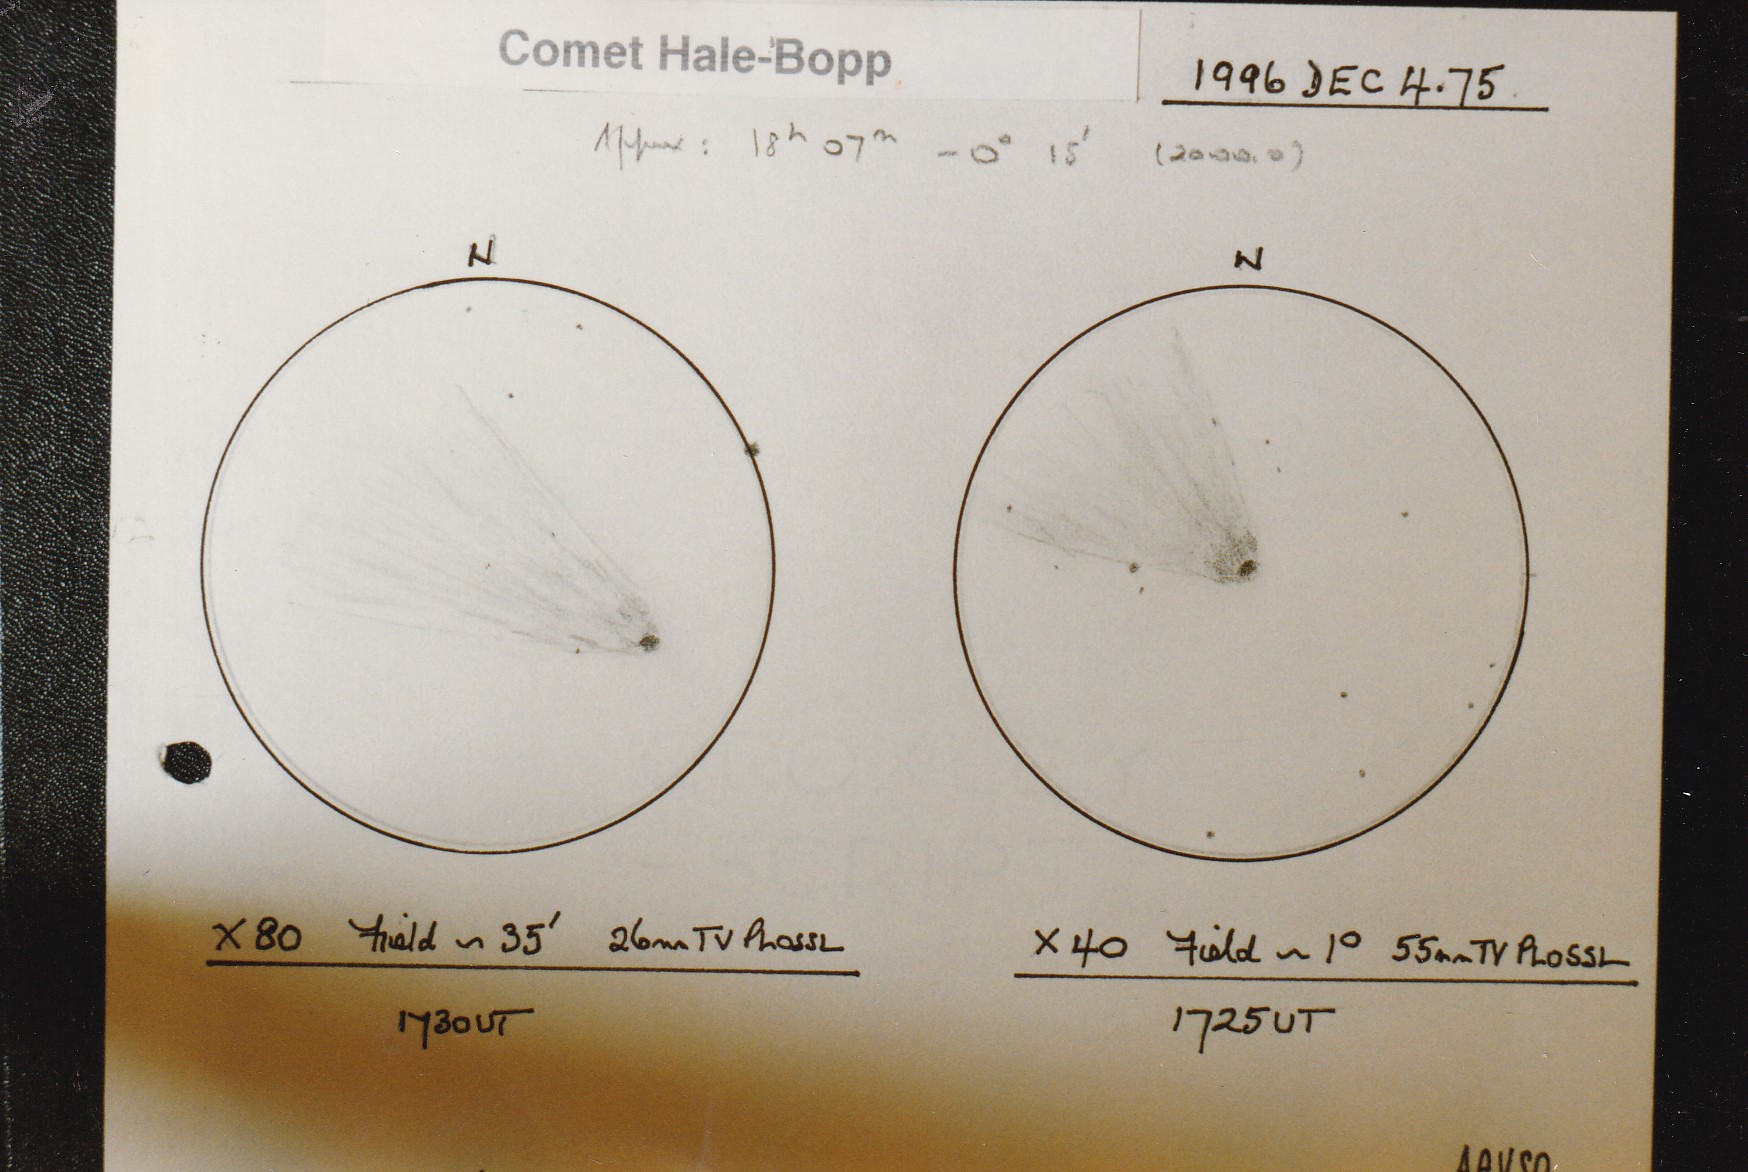 Comet Hale-Bopp
1996 DEC 4.75
Approx: 18h 07m -0° 15' (2000.0)
N
N
X80 Field ~ 35' 26mm TV PLOSSL
1730UT
X40 Field ~ 1° 55mm TV PLOSSL
1725UT